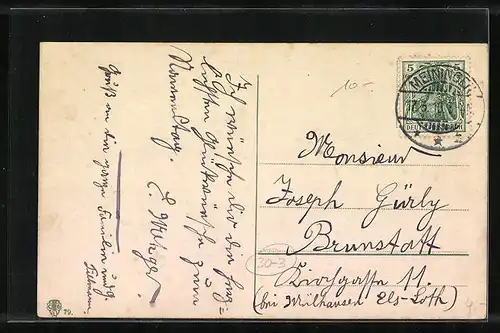 Ich wünsche dir den herz=
lichsten Glückwunsch zum
Namenstag.
E. Metzger.
Gruß an die ganze Familie
10.-
5 5
MEININGEN
DEUTSCHES REICH
Monsieur
Joseph Gürly
Brunstatt
Kirchgasse 11.
(bei Mülhausen Els-Loth)
30-3
79.